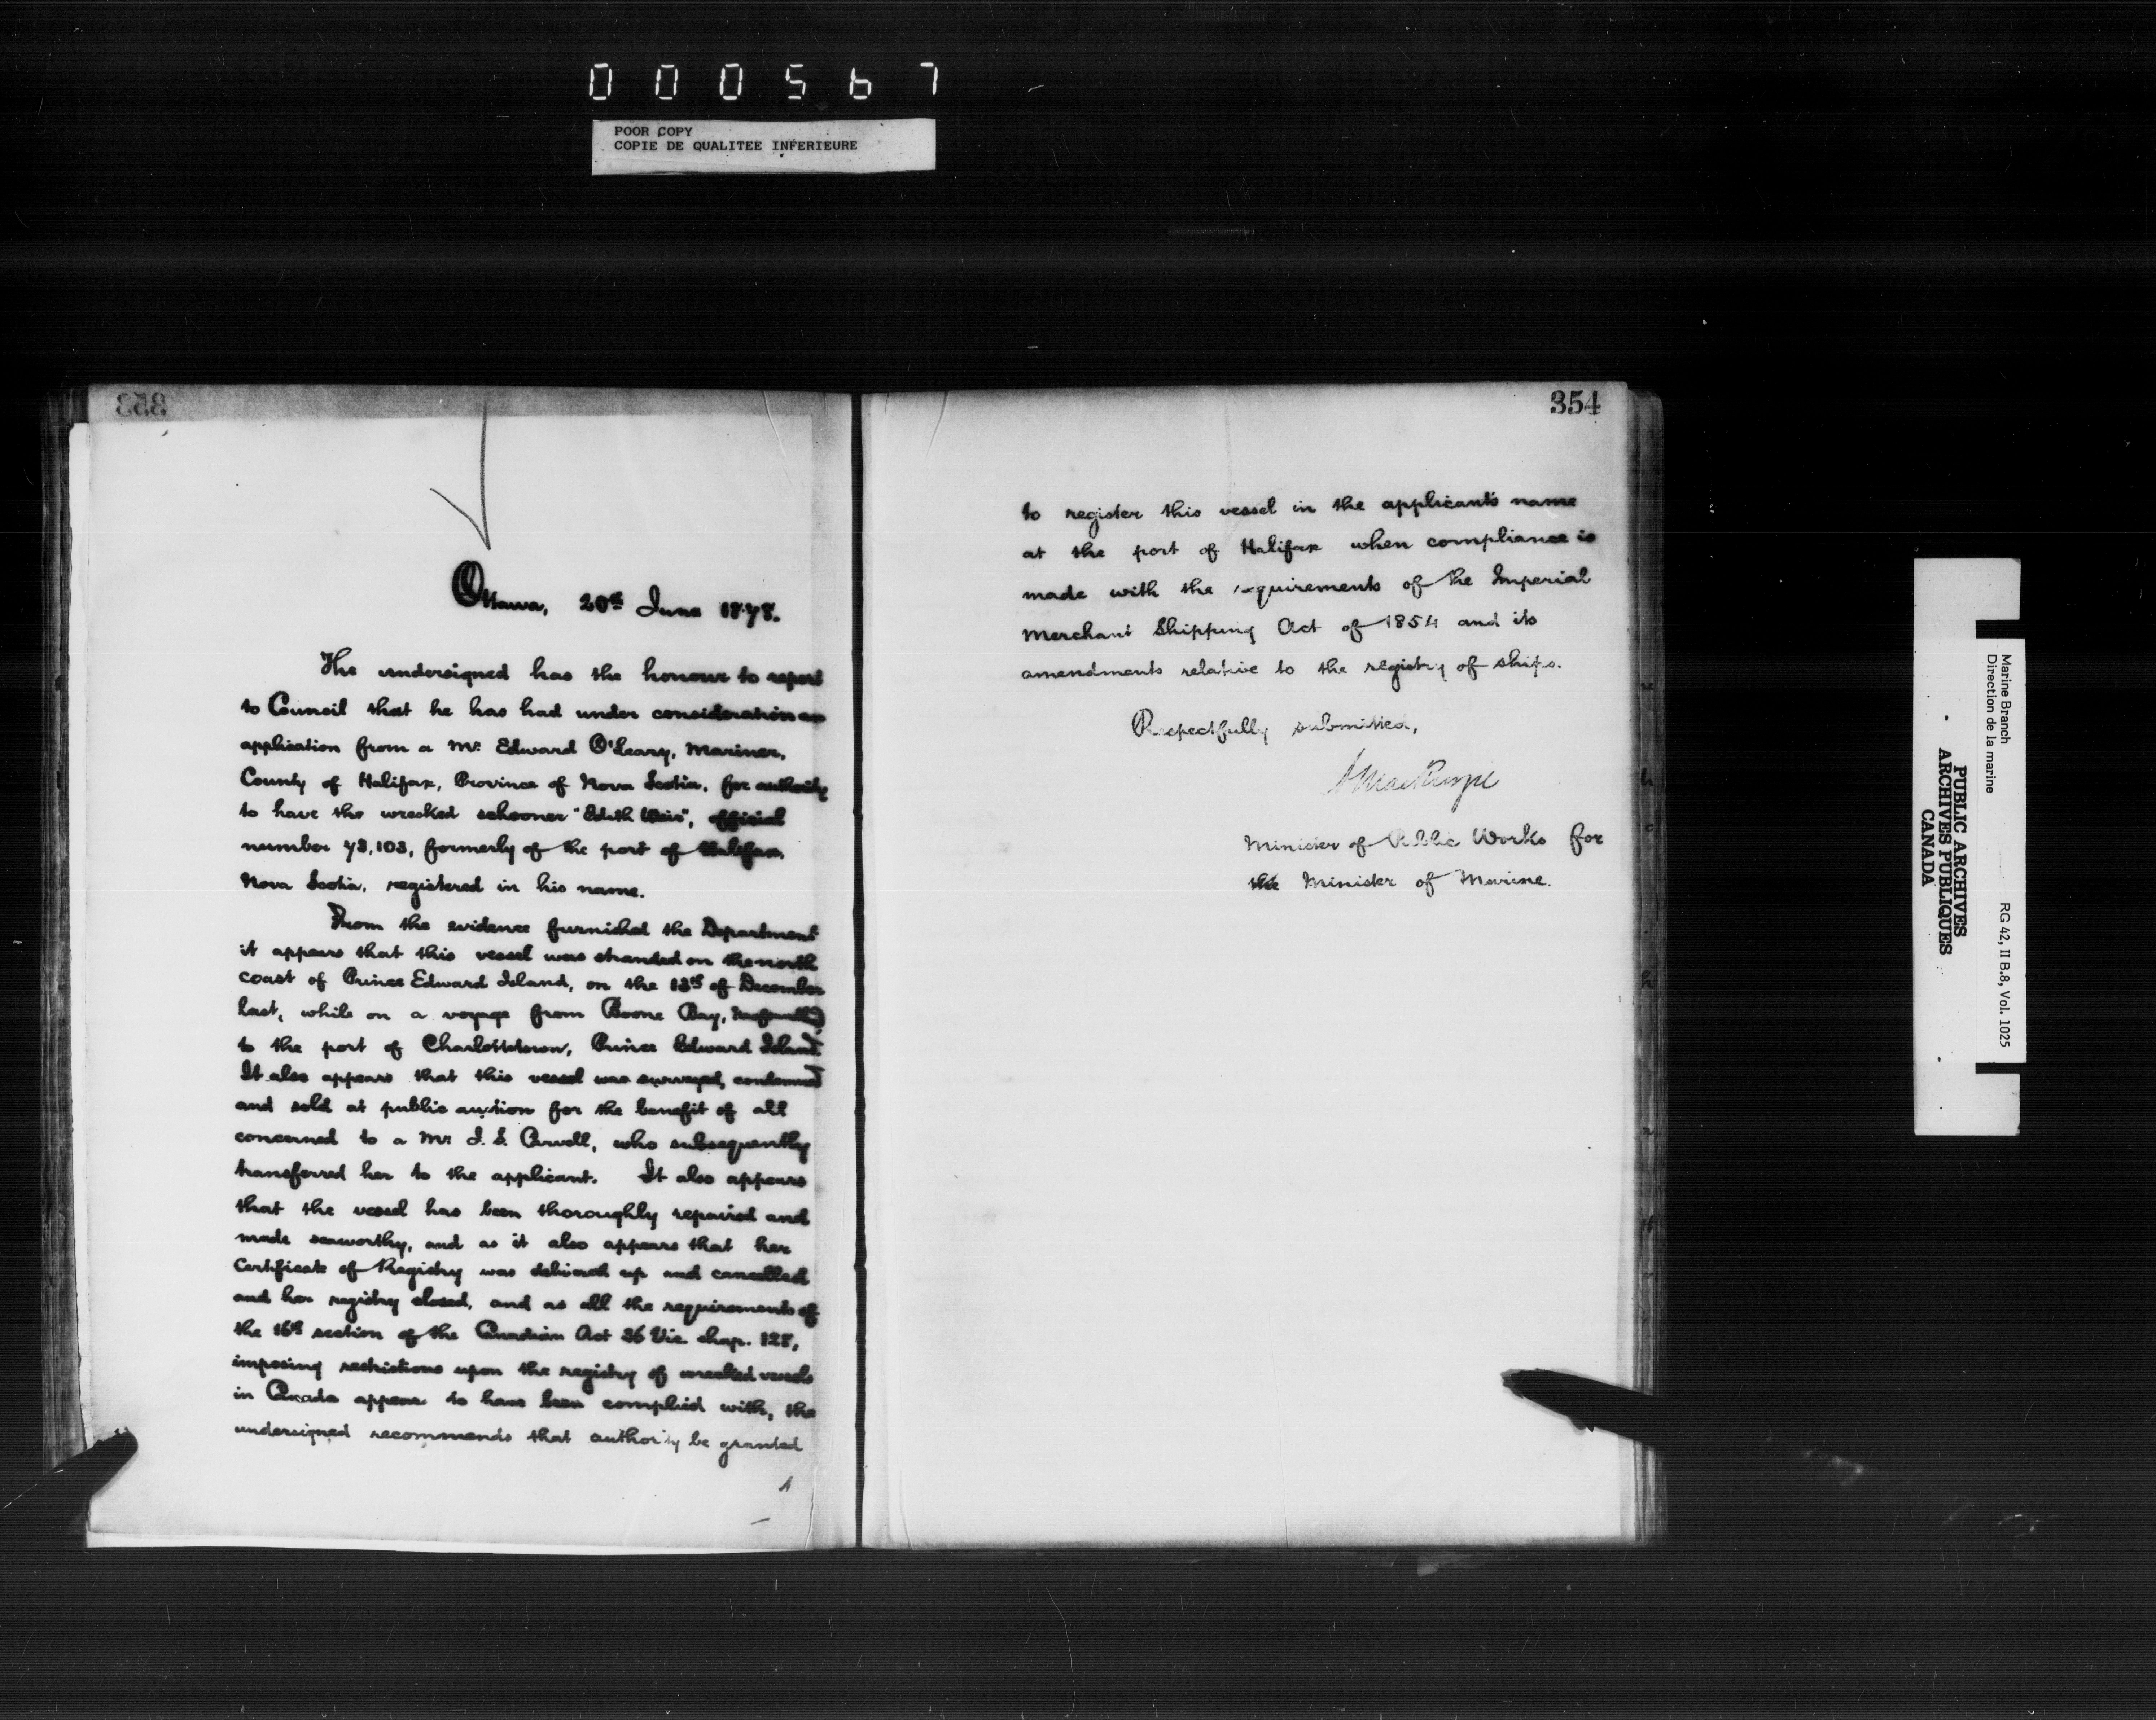 000567
POOR COPY
COPIE DE QUALITEE INFERIEURE
353
Ottawa, 20th June 1878.
The undersigned has the honour to report
to Council that he has had under consideration an
application from a Mr. Edward O'Leary, Mariner,
County of Halifax, Province of Nova Scotia, for authority
to have the wrecked schooner "Edith Weir", official
number 73,103, formerly of the port of Halifax,
Nova Scotia, registered in his name.
From the evidence furnished the Department
it appears that this vessel was stranded on the north
coast of Prince Edward Island, on the 13th of December
last, while on a voyage from Boone Bay,
to the port of Charlottetown, Prince Edward Island.
It also appears that this vessel was surveyed, condemned
and sold at public auction for the benefit of all
concerned to a Mr. Carvell, who subsequently
transferred her to the applicant. It also appears
that the vessel has been thoroughly repaired and
made seaworthy, and as it also appears that her
Certificate of Registry was delivered up and cancelled
and her registry closed, and as all the requirements of
the 16th section of the Canadian Act 36 Vic chap. 128,
imposing restrictions upon the registry of wrecked vessels
in Canada appear to have been complied with, the
undersigned recommends that authority be granted
354
to register this vessel in the applicant's name
at the port of Halifax when compliance is
made with the requirements of the Imperial
Merchant Shipping Act of 1854 and its
amendments relative to the registry of ships.
Respectfully submitted,
A Mackenzie
Minister of Public Works for
the Minister of Marine.
Marine Branch
Direction de la marine
RG 42, II B.8, Vol. 1025
PUBLIC ARCHIVES
ARCHIVES PUBLIQUES
CANADA